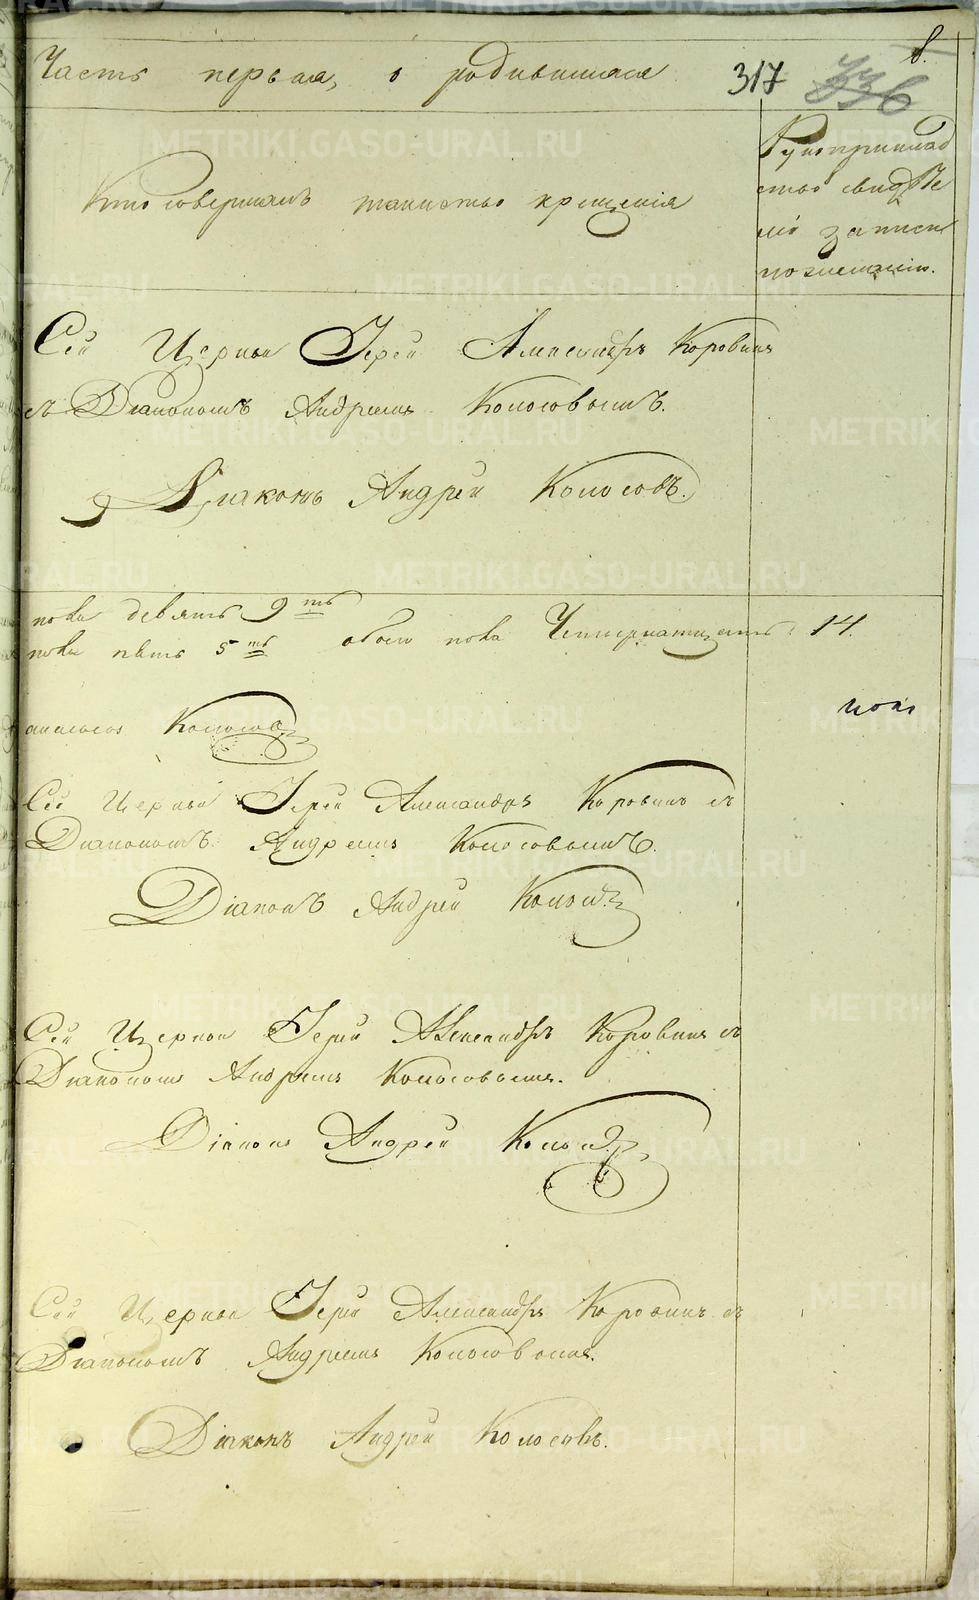 Часть первая, о родившихся
317
336
8.
Кто совершалъ таинство крещенія
Рукоприкладство свидѣтелей записи по желанію.
Сей Церкви Іерей Александръ Коровинъ
съ Діакономъ Андреемъ Колосовымъ.
Діаконъ Андрей Колосовъ.
пола девять 9ть
пола пять 5ть обоего пола Четырнатцать: 14.
Колосовъ
Сей Церкви Іерей Александръ Коровинъ съ
Діакономъ Андреемъ Колосовымъ.
Діаконъ Андрей Колосовъ
Сей Церкви Іерей Александръ Коровинъ съ
Діакономъ Андреемъ Колосовымъ.
Діаконъ Андрей Колосовъ
Сей Церкви Іерей Александръ Коровинъ съ
Діакономъ Андреемъ Колосовымъ.
Діаконъ Андрей Колосовъ.
METRIKI.GASO-URAL.RU